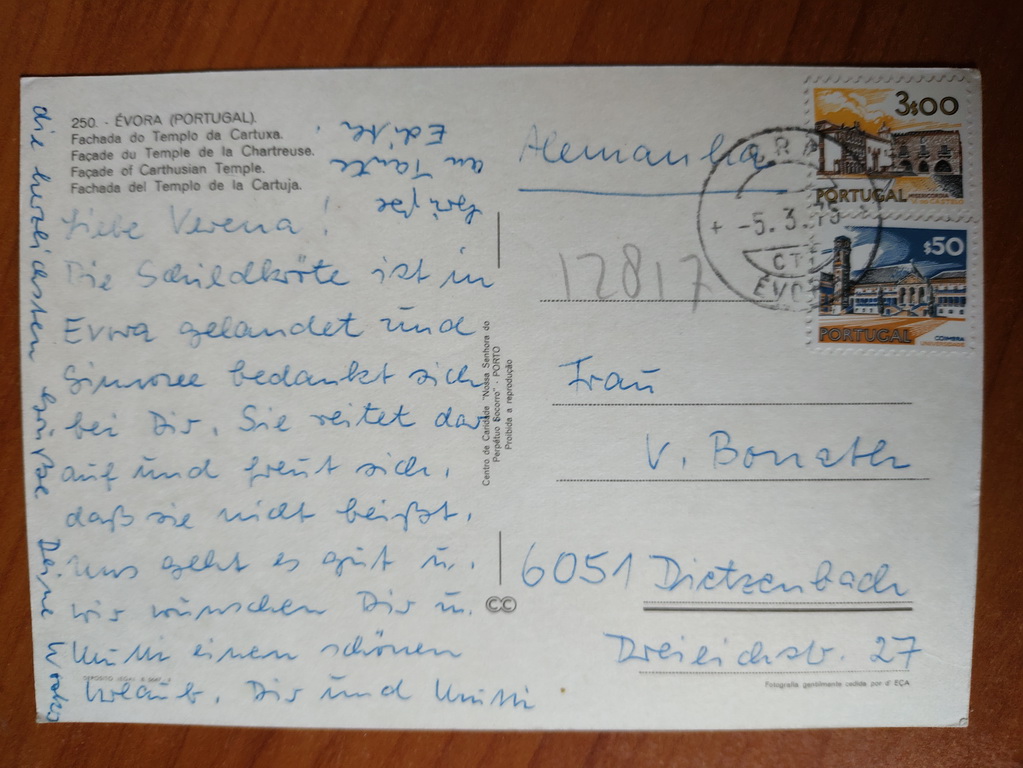 250. - ÉVORA (PORTUGAL).
Fachada do Templo da Cartuxa.
Façade du Temple de la Chartreuse.
Façade of Carthusian Temple.
Fachada del Templo de la Cartuja.
Liebe Verena!
Die Schildkröte ist in
Evora gelandet und
Simone bedankt sich
bei Dir. Sie reitet dar
auf und freut sich,
daß sie nicht beißt.
Uns geht es gut u.
wir wünschen Dir u.
Mutti einen schönen
Urlaub. Dir und Mutti
die herzlichsten Grüße Deine
Grüße
an Tante
Edith!
Centro de Caridade "Nossa Senhora do
Perpétuo Socorro" - PORTO
Proibida a reprodução
Alemanha
12817
Frau
V. Bonath
6051 Dietzenbach
Dreieichstr. 27
Fotografia gentilmente cedida por d' EÇA
3$00
PORTUGAL
$50
PORTUGAL
COIMBRA
-5. 3.
CT
ÉVO
CC